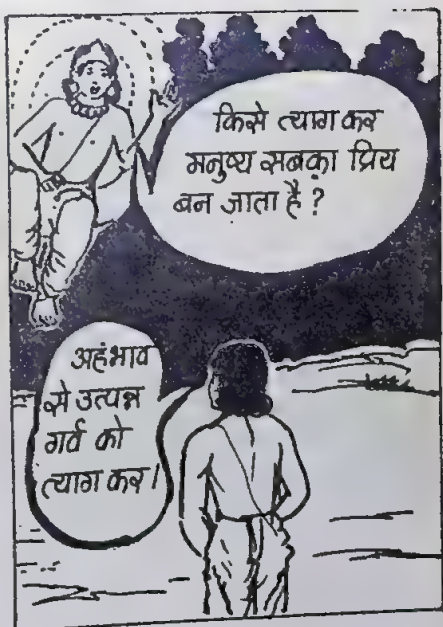 किसे त्याग कर
मनुष्य सबका प्रिय
बन जाता है ?
अहंभाव
से उत्पन्न
गर्व को
त्याग कर।